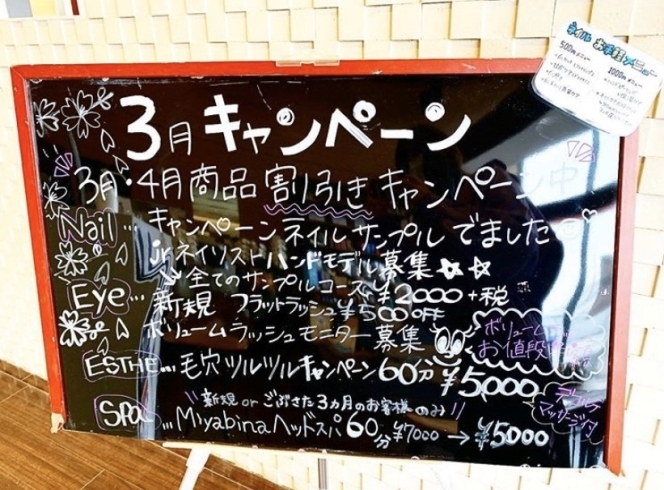 ネイル お手軽メニュー
500円メニュー
1000円メニュー
3月キャンペーン
3月・4月商品割引きキャンペーン中
Nail... キャンペーンネイルサンプルでました
jrネイリストハンドモデル募集☆☆
全てのサンプルコース ¥2000+税
Eye... 新規 フラットラッシュ¥500off
ボリュームラッシュモニター募集
ボリューム
お値段
ESTHE... 毛穴ツルツルキャンペーン60分¥5000
デコルテ
マッサージ付
"新規orごぶさた3カ月のお客様のみ!!"
Spa... Miyabinaヘッドスパ60分¥7000→¥5000